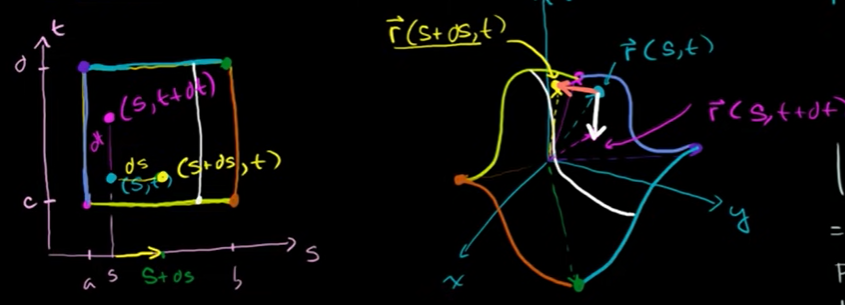 t
d
(s, t+dt)
dt
ds
(s+ds, t)
(s,t)
c
a
s
s+ds
b
s
r⃗(s+ds,t)
r⃗(s,t)
r⃗(s,t+dt)
y
x
=